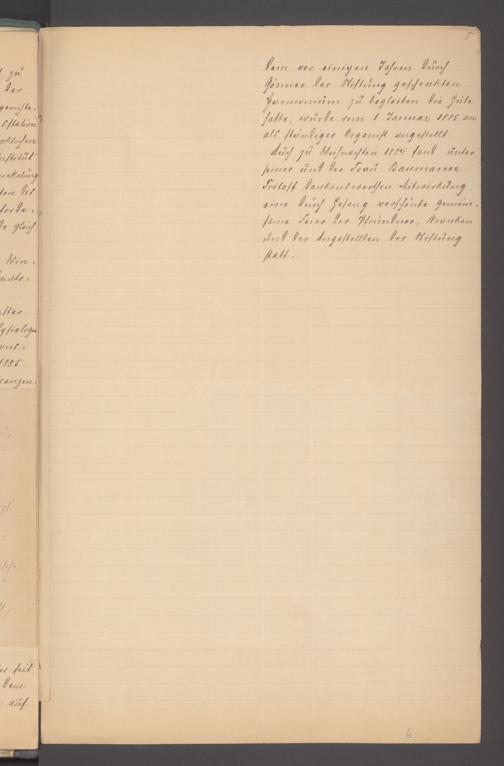 5
dem vor einigen Jahren durch
Gönner der Stiftung geschenkten
Harmonium zu begleiten die Güte
hatte, wurde vom 1 Januar 1885 an
als ständiger Organist angestellt.
Auch zu Weihnachten 1884 fand unter
seiner und der Frau Baumann-
dankenswerthen Mitwirkung
eine durch Gesang verschönte gemein-
same Feier der Pfründner, Kranken
und der Angestellten der Stiftung
statt.
6